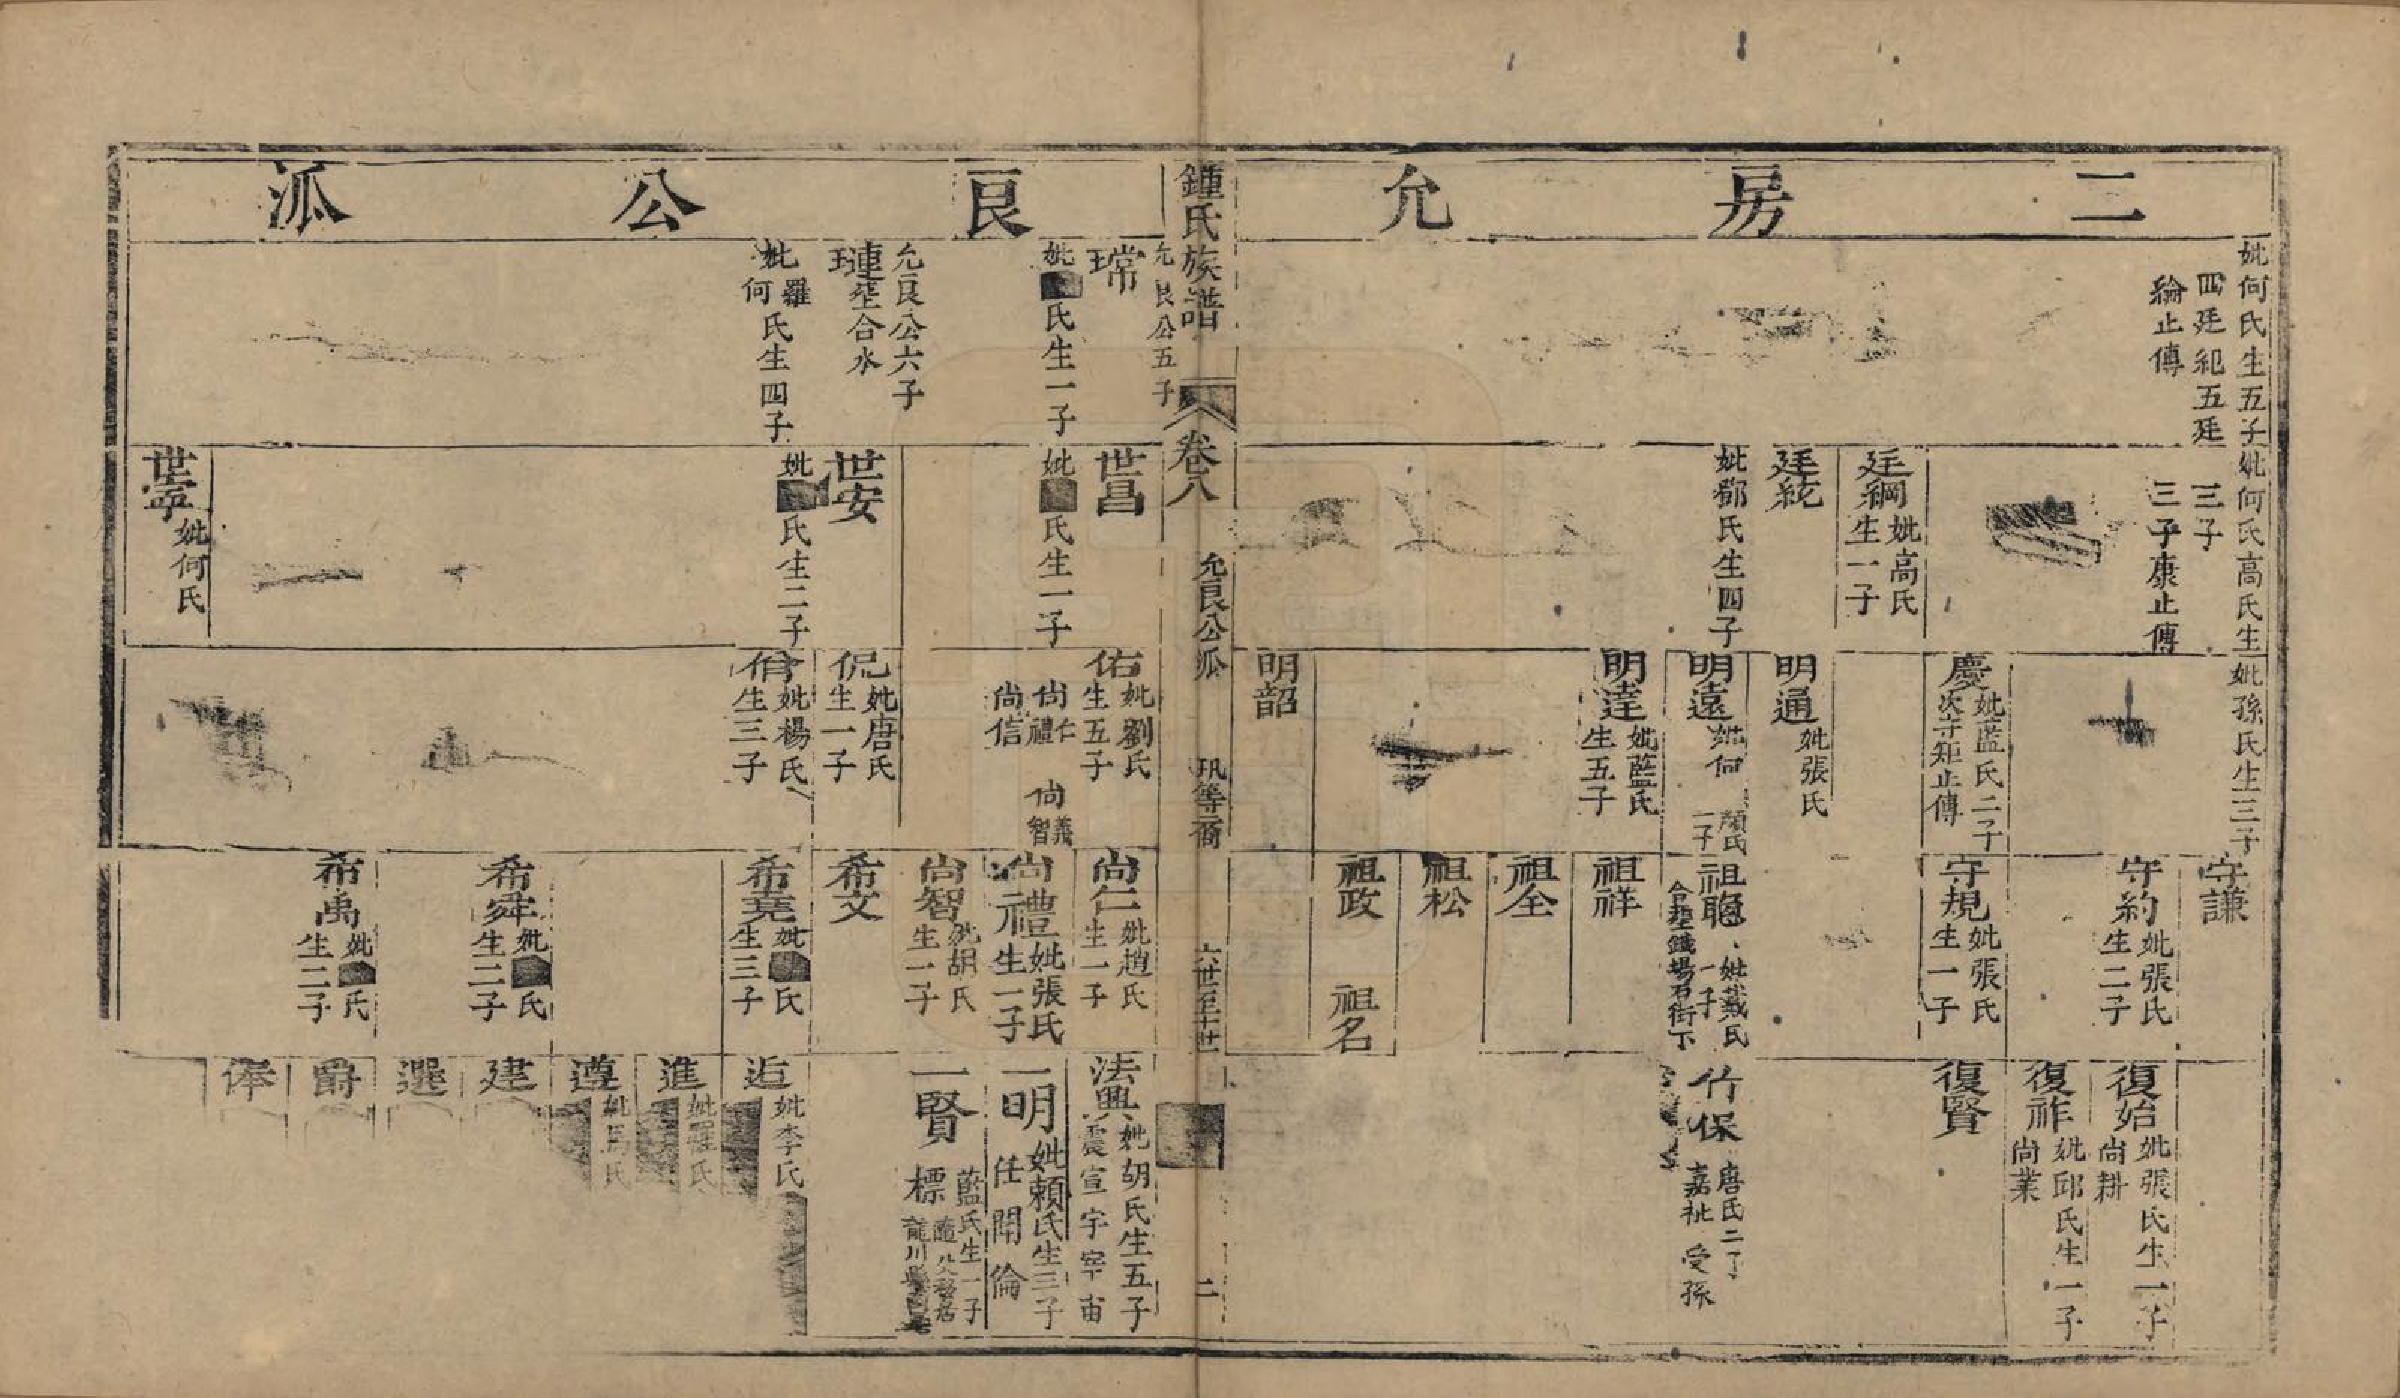 二房允良公派
妣何氏生五子
四廷紀五廷
綸止傳
妣何氏高氏生
三子
三子康止傳
廷綱
妣高氏
生一子
廷統
妣鄧氏生四子
妣孫氏生三子
慶
妣藍氏二子
次守矩止傳
明通
妣張氏
明遠
妣何
顏氏
一子
明達
妣藍氏
生五子
明韶
守謙
守約
妣張氏
生二子
守規
妣張氏
生一子
祖聰
妣戴氏
一子
祖祥
祖全
祖松
祖政
祖名
復始
妣張氏生一子
尚耕
復祚
妣邱氏生一子
尚業
復賢
竹保
唐氏二子
嘉祉 受孫
鍾氏族譜
卷八
允良公派
六世至十世
二
允良公五子
瑺
妣 氏生一子
允良公六子
璉
塟合水
妣羅何氏生四子
世昌
妣 氏生一子
世安
妣 氏生二子
世寧
妣何氏
佑
妣劉氏
生五子
尚仁
尚禮
尚信
尚義
智
侃
妣唐氏
生一子
妣楊氏
生三子
尚仁
妣趙氏
生一子
尚禮
妣張氏
生一子
尚智
妣胡氏
生一子
希文
希堯
妣 氏
生三子
希舜
妣 氏
生二子
希禹
妣 氏
生二子
法興
妣胡氏生五子
震宣宇宰宙
一明
妣賴氏生三子
任開倫
一賢
藍氏生一子
標
近
妣李氏
進
妣羅氏
遵
妣馬氏
建
選
爵
奉